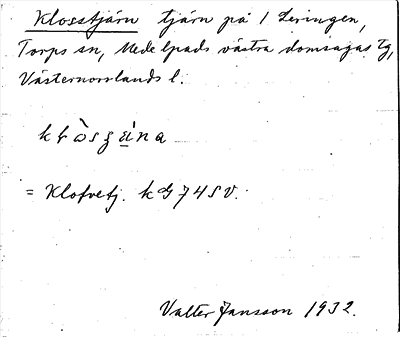 Klosstjärn tjärn på / Leringen,
Torps sn, Medelpads västra domsagas tg,
Västernorrlands l.
= Klofvetj. k G 74 S V.
Valter Jansson 1932.